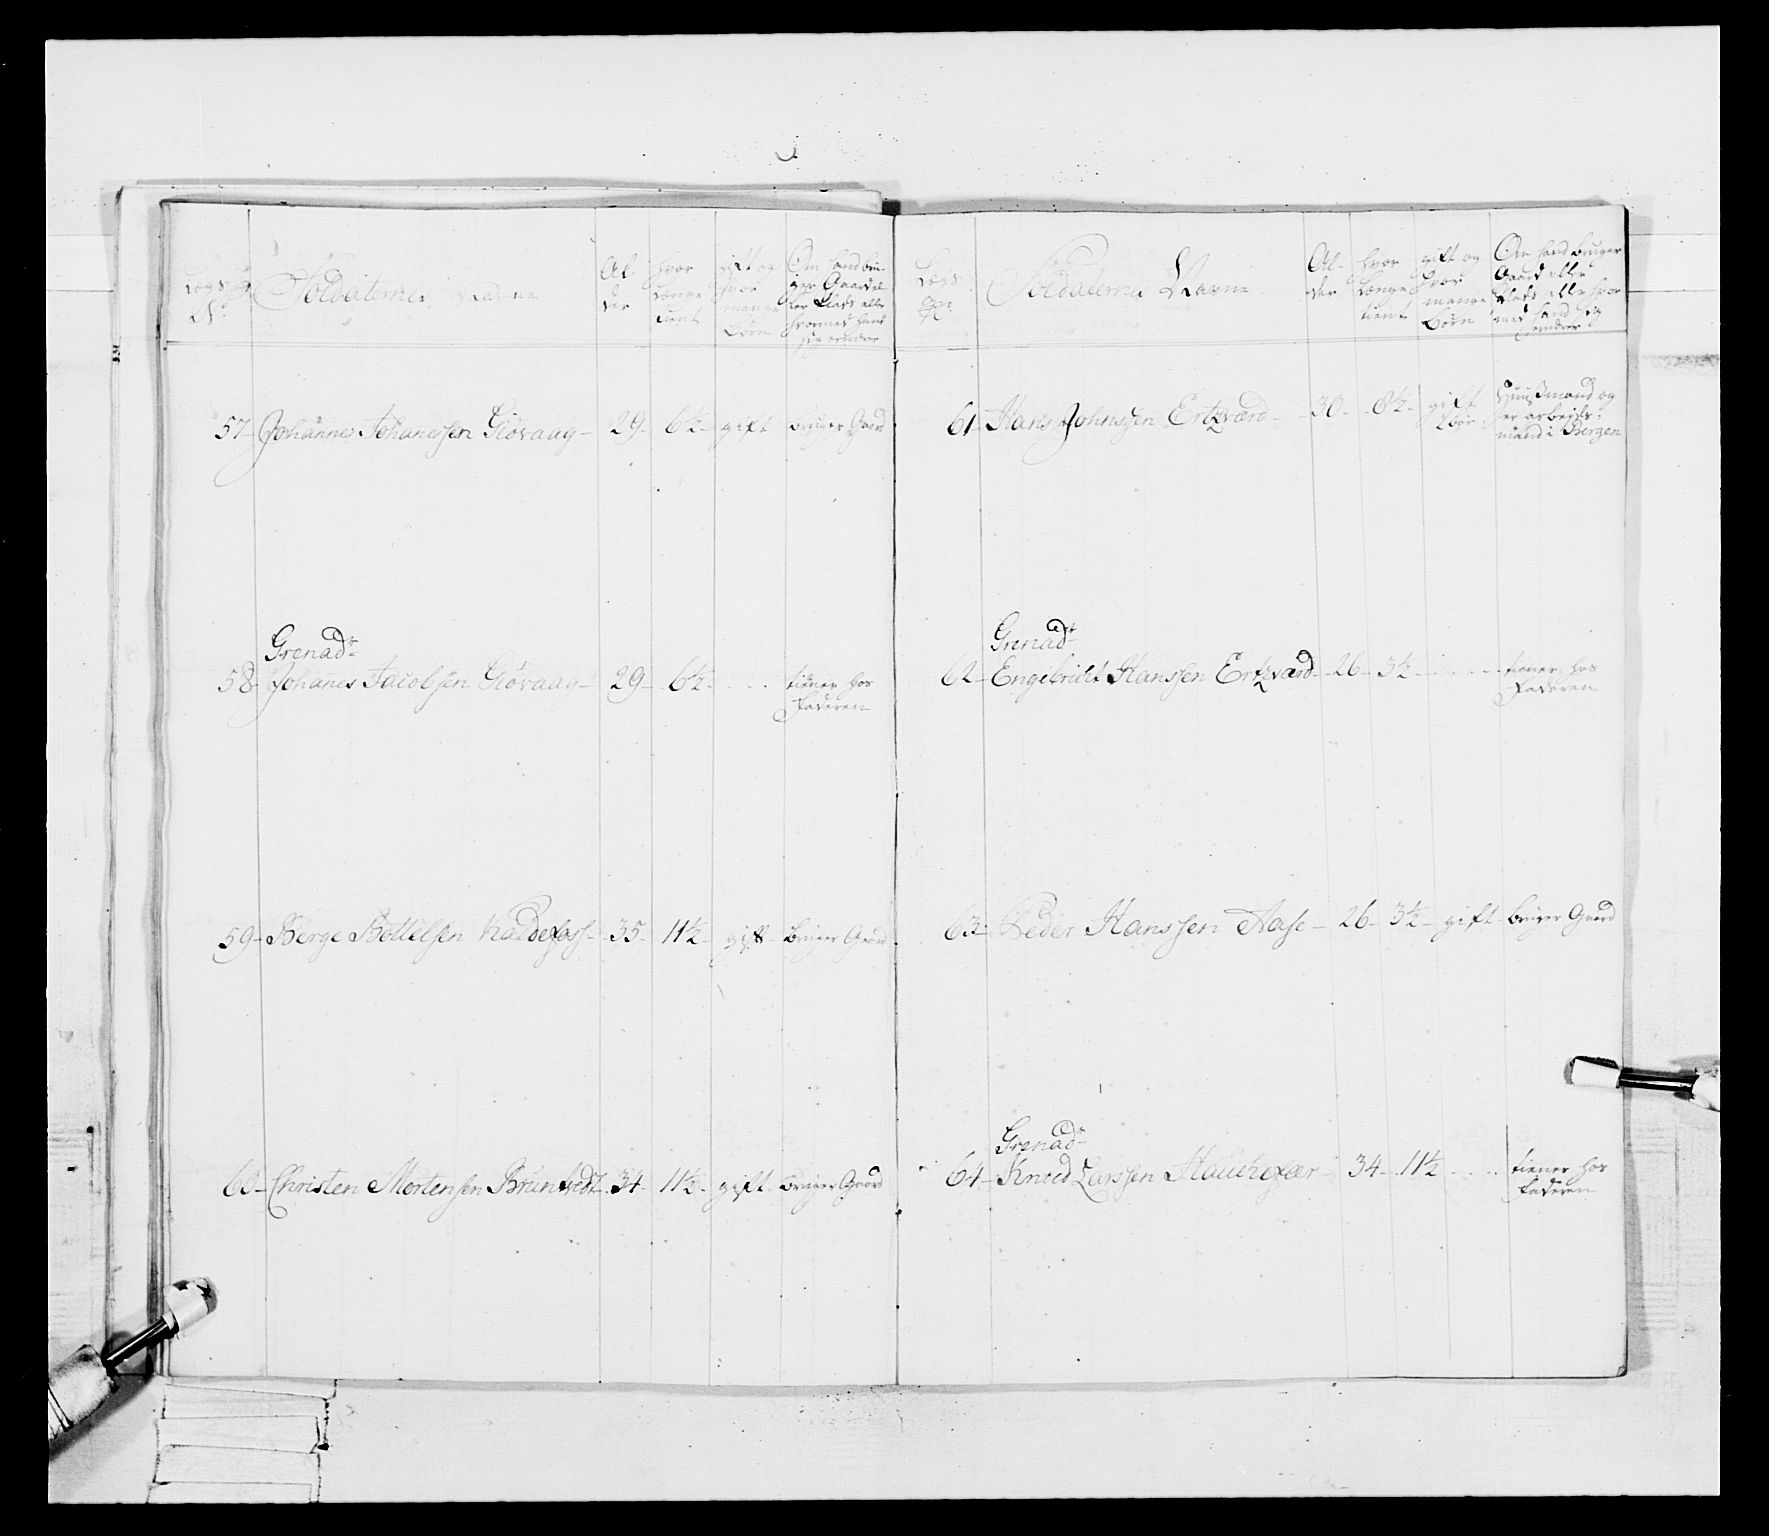 Lægs No Soldaternes Navne Al der hvor længe tient gift og hvor mange Børn Om hand bru- ger Gaard el ler Plads eller hvormed hand sig ernærer
57 - Johannes Johanessen Giøvaag - 29 - 6½ - gift bruger Gaard
Grenadr
58 - Johanes Jacobsen Giøvaag - 29 - 6½ - tiener hos
Faderen
59 - Berge Bottelsen Kaldefoss - 35 - 11½ - gift - bruger Gaard
60 - Christen Mortensen Bruntvedt - 34 - 11½ - gift bruger Gaard
Lægs No Soldaternes Navne Al- der hvor længe tient gift og hvor mange børn Om hand bruger Gaard eller Plads eller hvor med hand sig ernærer
61 - Hans Johnssen Ertzværd - 30 - 8½ - gift 2 bør Huusmand og
er arbejds-
mand i Bergen
Grenadr
62 - Engebricht Hanssen Ertzværd - 26 - 3½ - tiener hos
Faderen
63 - Peder Hanssen Aase - 26 - 3½ - gift - bruger Gaard
Grenadr
64 - Knud Larssen - 34 - 11½ tiener hos
Faderen